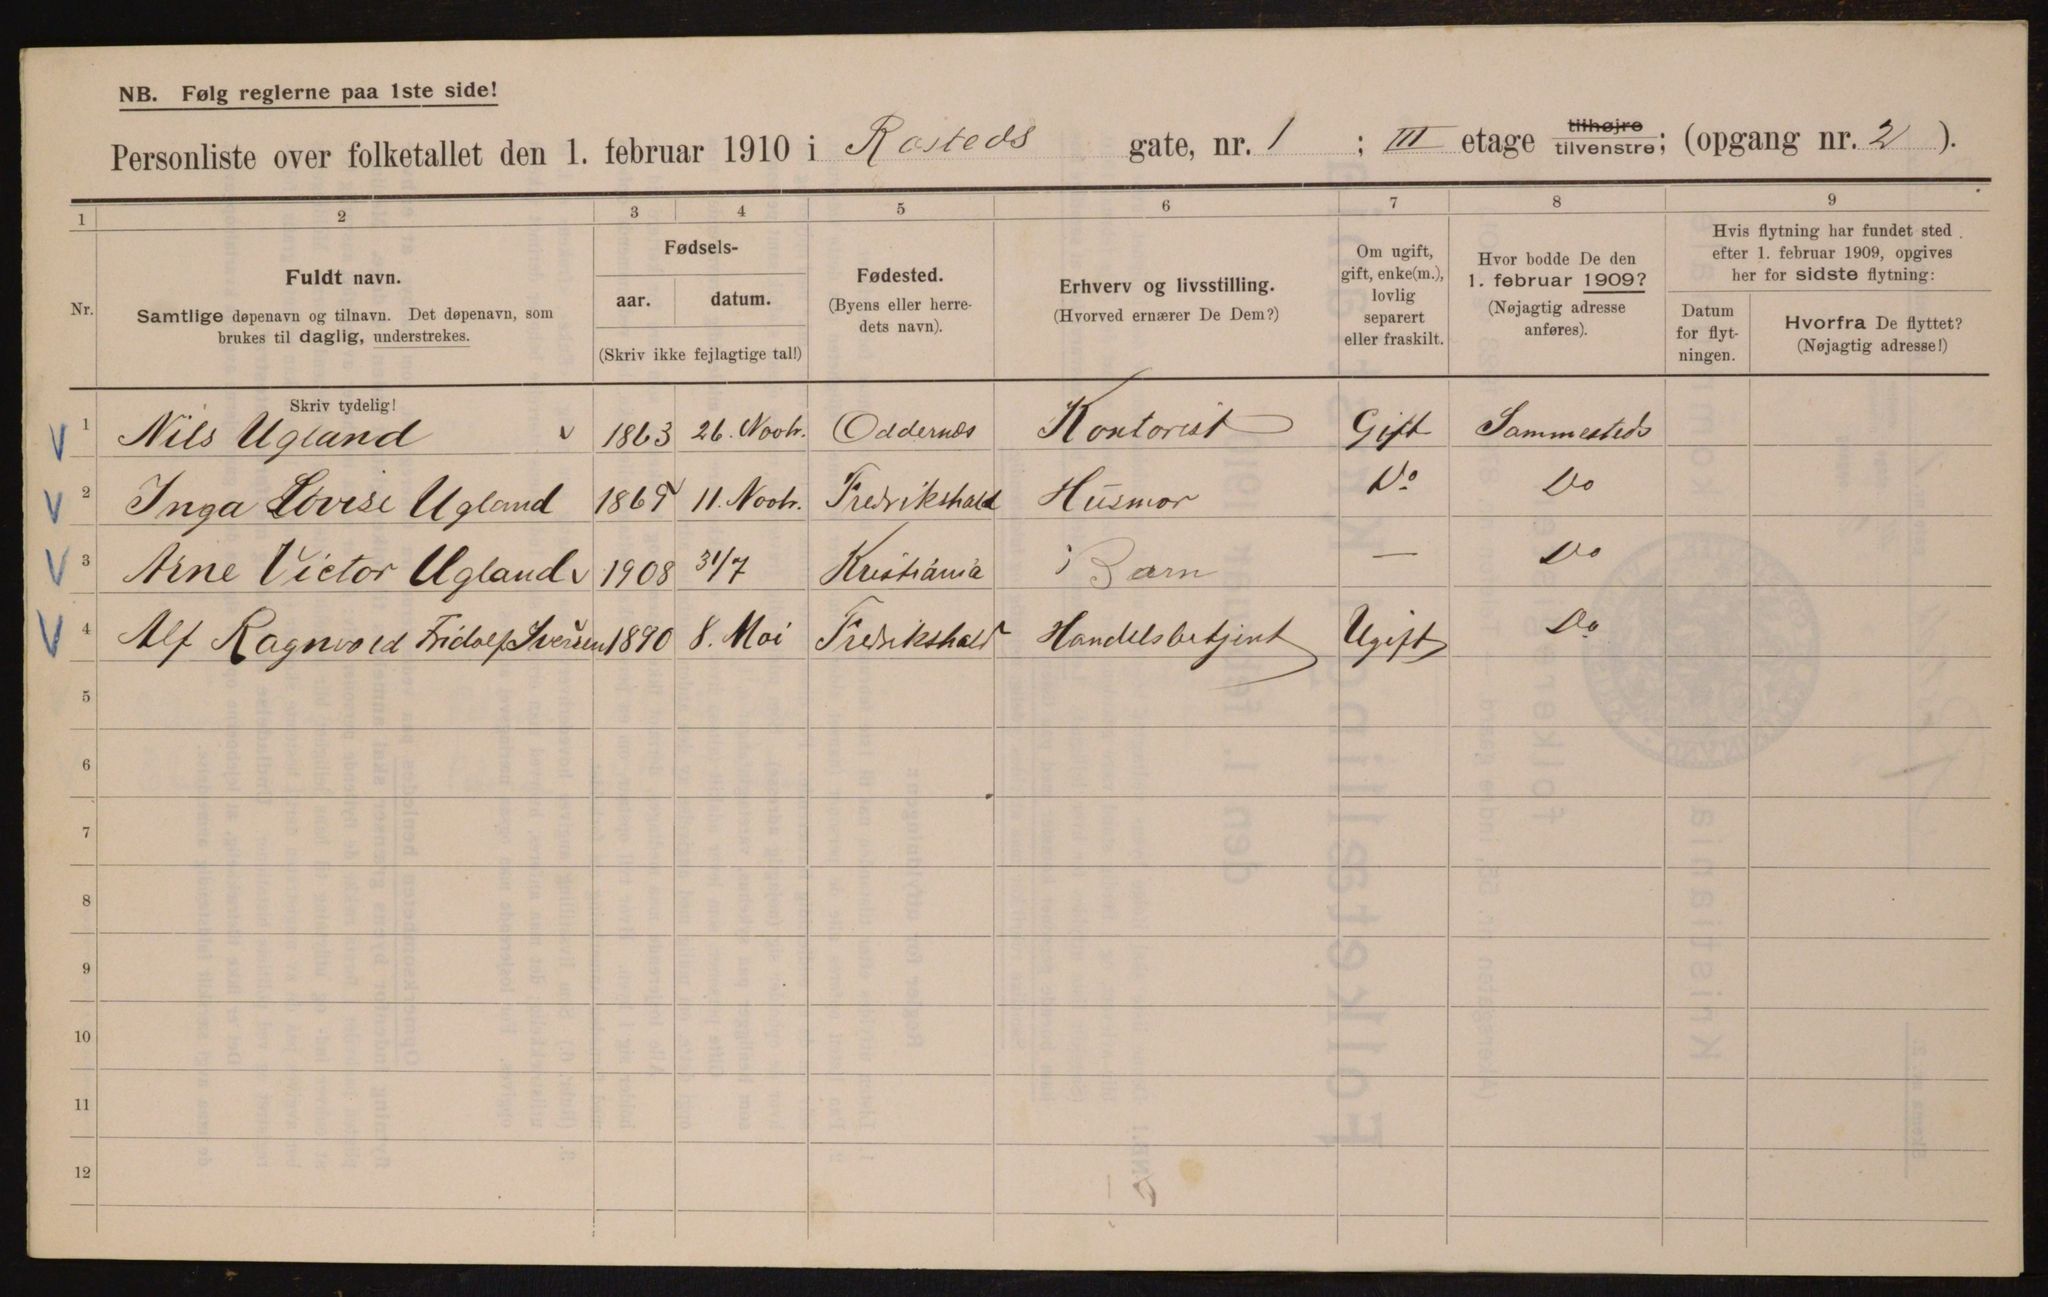 NB. Følg reglerne paa 1ste side!
Personliste over folketallet den 1. februar 1910 i Rosteds gate, nr. 1 ; III etage tilhøjre tilvenstre; (opgang nr. 2 ).
1 2 3 4 5 6 7 8 9
Nr.
Fuldt navn.
Samtlige døpenavn og tilnavn. Det døpenavn, som
brukes til daglig, understrekes.
Fødsels-
aar. datum.
(Skriv ikke fejlagtige tal!)
Fødested.
(Byens eller herre-
dets navn).
Erhverv og livsstilling.
(Hvorved ernærer De Dem?)
Om ugift,
gift, enke(m.),
lovlig
separert
eller fraskilt.
Hvor bodde De den
1. februar 1909?
(Nøjagtig adresse
anføres).
Hvis flytning har fundet sted
efter 1. februar 1909, opgives
her for sidste flytning:
Datum
for flyt-
ningen.
Hvorfra De flyttet?
(Nøjagtig adresse!)
Skriv tydelig!
1 Nils Ugland 1863 26. Novbr. Oddernæs Kontorist Gift Sammesteds
2 Inga Lovise Ugland 11. Novbr. Fredrikshald Husmor Do Do
3 Arne Victor Ugland 1908 31/7 Kristiania Barn — Do
4 Alf Ragnvald Fridolf Iversen 1890 8. Mai Fredrikshald Handelsbetjent Ugift Do
5
6
7
8
9
10
11
12